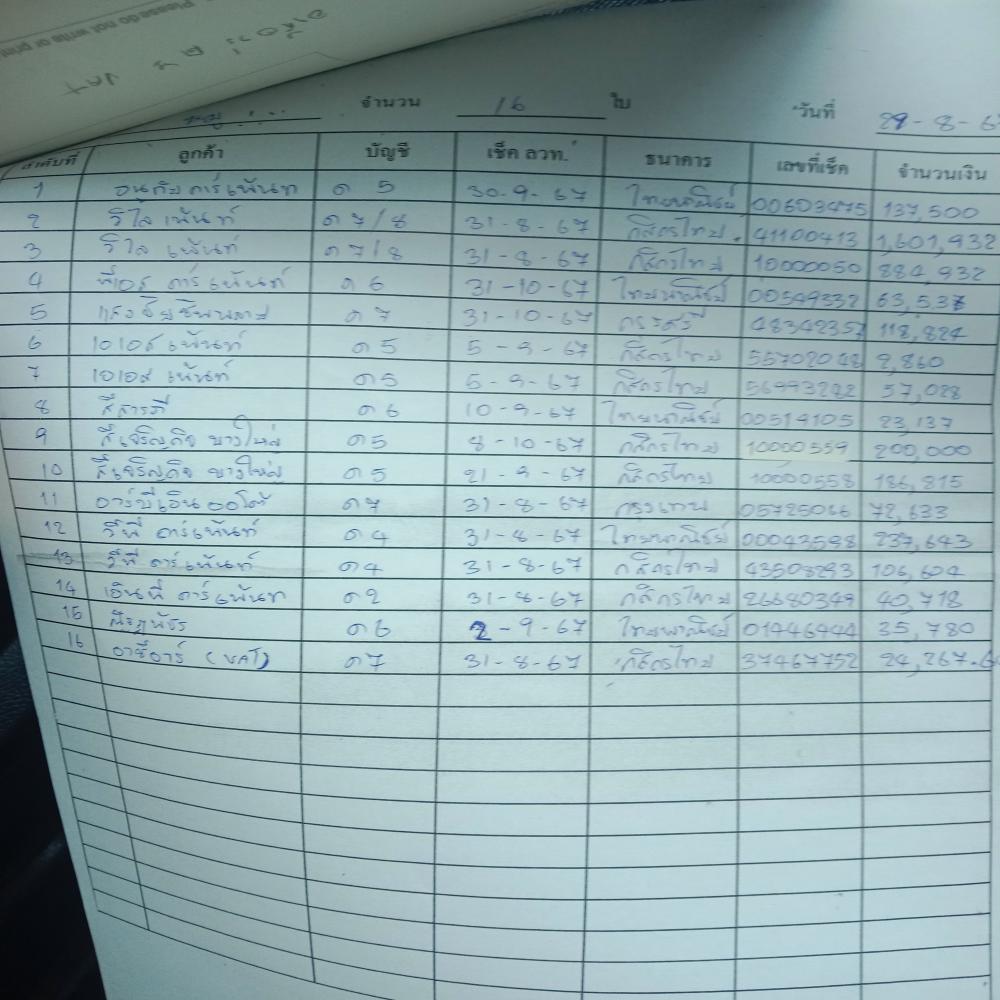 Please do not write or print
จำนวน 16 ใบ วันที่ 29-8-6
ลำดับที่ ลูกค้า บัญชี เช็ค ลวท. ธนาคาร เลขที่เช็ค จำนวนเงิน
1 ด 5 30-9-67 ไทยพาณิชย์ 00603475 137,500
2 วิไล เพ้นท์ ด 7/8 31-8-67 กสิกรไทย 41100413 1,601,932
3 วิไล เพ้นท์ ด 7/8 31-8-67 กสิกรไทย 10000050 884,932
4 คาร์เพ้นท์ ด 6 31-10-67 ไทยพาณิชย์ 00549332
5 ด 7 31-10-67 กรุงศรี 48342357 118,824
6 เอเอส เพ้นท์ ด 5 5-9-67 กสิกรไทย 55702048 2,860
7 เอเอส เพ้นท์ ด5 5-9-67 กสิกรไทย 56993282 57,028
8 ด 6 10-9-67 ไทยพาณิชย์ 00514105 23,137
9 สีเจริญกิจ บางใหญ่ ด5 8-10-67 กสิกรไทย 10000559 200,000
10 สีเจริญกิจ บางใหญ่ ด5 21-9-67 กสิกรไทย 10000558 186,815
11 อาร์บีเอ็นออโต้ ด7 31-8-67 กรุงเทพ 05725066 72,633
12 วีพี คาร์เพ้นท์ ด4 31-8-67 ไทยพาณิชย์ 00043598 237,643
13 วีพี คาร์เพ้นท์ ด4 31-8-67 กสิกรไทย 43508293 106,604
14 เอ็นพี คาร์เพ้นท ด2 31-8-67 กสิกรไทย 26680349 40,718
15 ด6 2-9-67 ไทยพาณิชย์ 01446444 35,780
16 อาซีอาร์ (VAT) ด7 31-8-67 กสิกรไทย 37467752 24,267.6